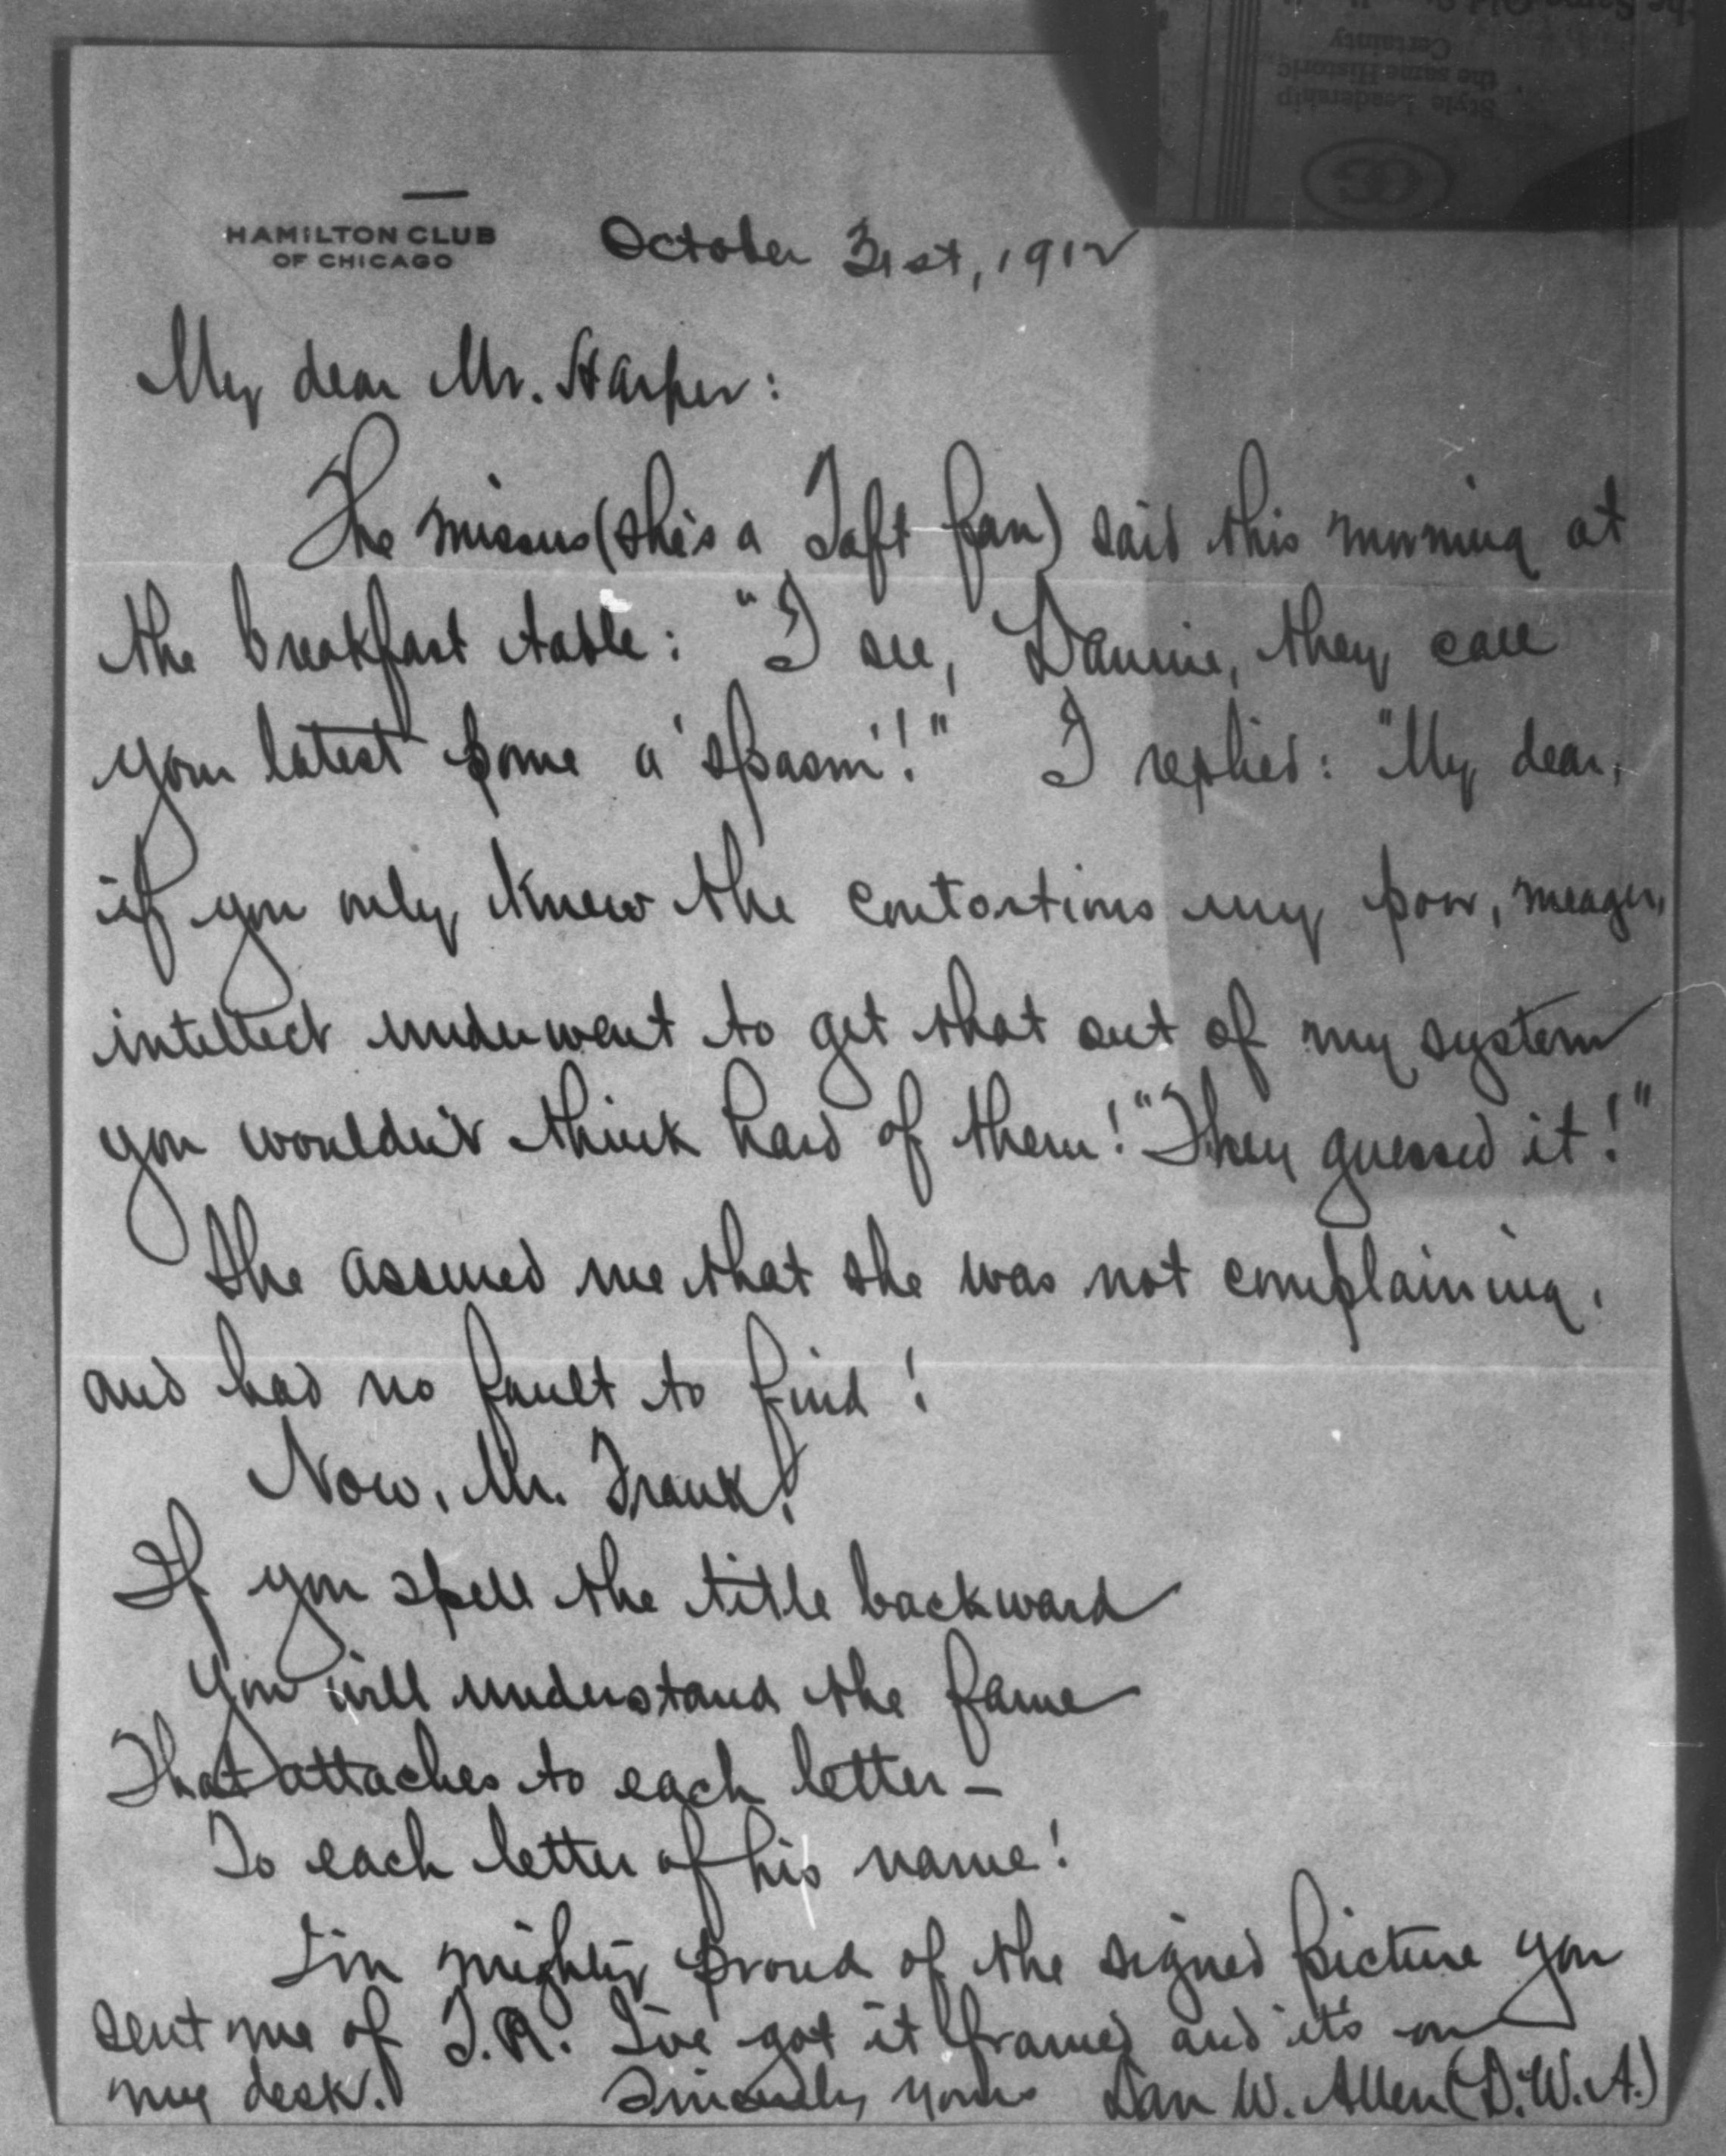 the Same Old S
Certainty
the same Historic
Style Leadership
HAMILTON CLUB
OF CHICAGO
October 31st, 1912
My dear Mr. Harper:
The missus (she's a Taft fan) said this morning at
the breakfast table: "I see, Dannie, they call
your latest pome a 'spasm'!" I replied: "My dear,
if you only knew the contortions my poor, meager,
intellect underwent to get that out of my system
you wouldn't think hard of them! "They guessed it!"
She assured me that she was not complaining,
and had no fault to find!
Now, Mr. Frank!
If you spell the title backward
You will understand the fame
That attaches to each letter –
To each letter of his name!
I'm mighty proud of the signed picture you
sent me of T.R. I've got it framed and it's on
my desk. Sincerely yours Dan W. Allen (D.W.A.)